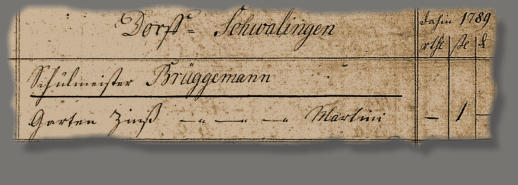 Dorfft= Schwalingen
Jahr 1789
rthl ßc ₰
Schulmeister Brüggemann
Garten Zinß Martini — 1 —